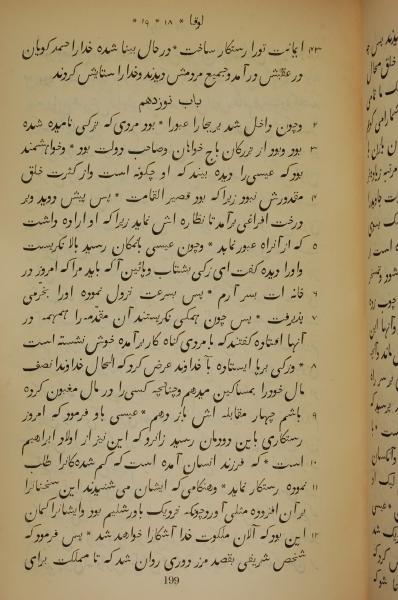 لوقا * ۱۸ * ۱۹ *
۴۳ ایمانت تورا رستکار ساخت * در حال بینا شده خدا را حمد کویان
در عقبش در آمد و جمیع مردمش دیدند و خدا را ستایش کردند
باب نوزدهم
۲ و چون داخل شد بر یریحا عبورا * بود مردی که زکی نامیده شده
۳ بود و بود از بزرکان باج خواهان و صاحب دولت بود * و خواهشمند
بود که عیسی را دیده بیند که او چکونه است و از کثرت خلق
۴ مقدورش نبود زیرا که بود قصیر القامت * پس پیش دوید و بر
درخت افراغی بر آمد تا نظاره اش نماید زیرا که او اراده داشت
۵ که از آنراه عبور نماید * و چون عیسی بآمکان رسید بالا نکریست
و اورا دیده کفت ای زکی بشتاب و پائین آ که باید مرا که امروز در
۶ خانه ات بسر آرم * پس بسرعت نزول نموده اورا بخرمی
۷ پذیرفت * پس چون همکی نکریستند آن مقدمه را همهمه در
آنها افتاده کفتند که با مردی کناه کار بر آمده خوش نشسته است
۸ * و زکی بر پا ایستاده با خداوند عرض کرد که الحال خداوندا نصف
مال خود را بمساکین میدهم و چنانچه کسی را در مال مغبون کرده
۹ باشم چهار مقابله اش باز دهم * عیسی باو فرمود که امروز
رستکاری باین دودمان رسید زانرو که این نیز از اولاد ابراهیم
۱۰ است * که فرزند انسان آمده است که کم شده کانرا طلب
۱۱ نموده رستکار نماید * و هنکامی که ایشان می شنیدند این سخنانرا
بر آن افزوده مثلی آورد چونکه نزدیک باورشلیم بود و ایشانرا کمان
۱۲ این بود که الان ملکوت خدا آشکارا خواهد شد * پس فرمود که
شخص شریفی بقصد مرز دوری روان شد که تا مملکت برای
199